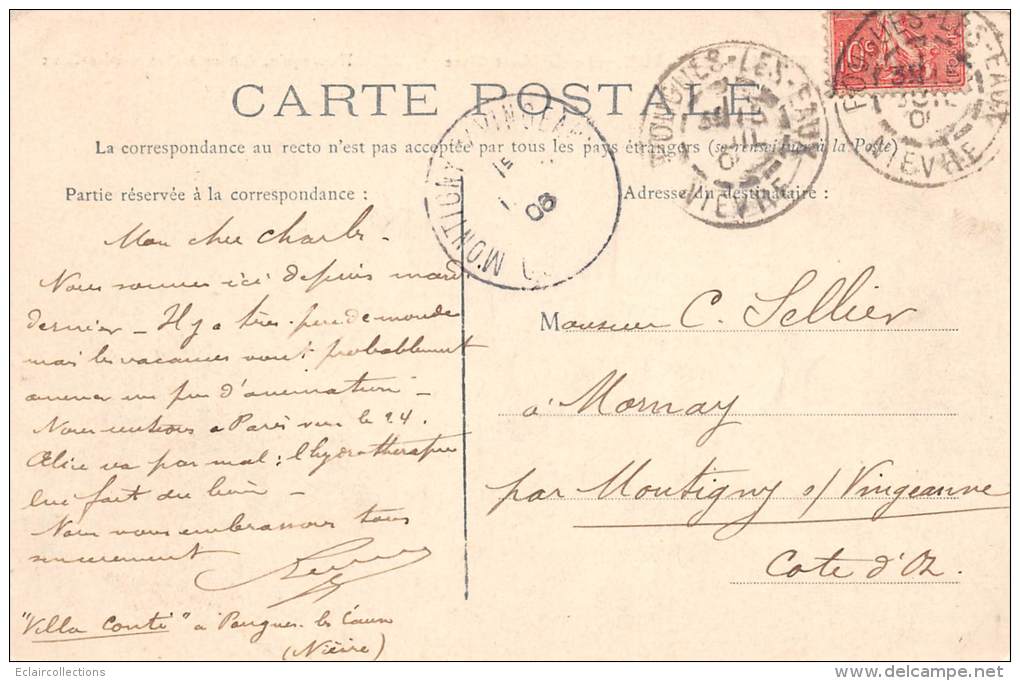 CARTE POSTALE
La correspondance au recto n'est pas acceptée par tous les pays étrangers (se renseigner à la Poste)
Partie réservée à la correspondance :
Adresse du destinataire :
Mon cher Charles -
Nous sommes ici depuis mardi
dernier - Il y a très peu de monde
mais les vacances vont probablement
amener un peu d'animation -
Nous rentrons à Paris vers le 24.
Alice va pas mal : l'hydrothérapie
lui fait du bien -
Nous vous embrassons tous
sincèrement
"Villa Conti" à Pougues les Eaux
(Nièvre)
Monsieur C. Sellier
à Mornay
par Montigny s/ Vingeanne
Cote d'Or
POUGUES-LES-EAUX
NIEVRE
POUGUES-LES-EAUX
NIEVRE
MONTIGNY S VINGEANNE
15
06
Eclaircollections
delcampe.net